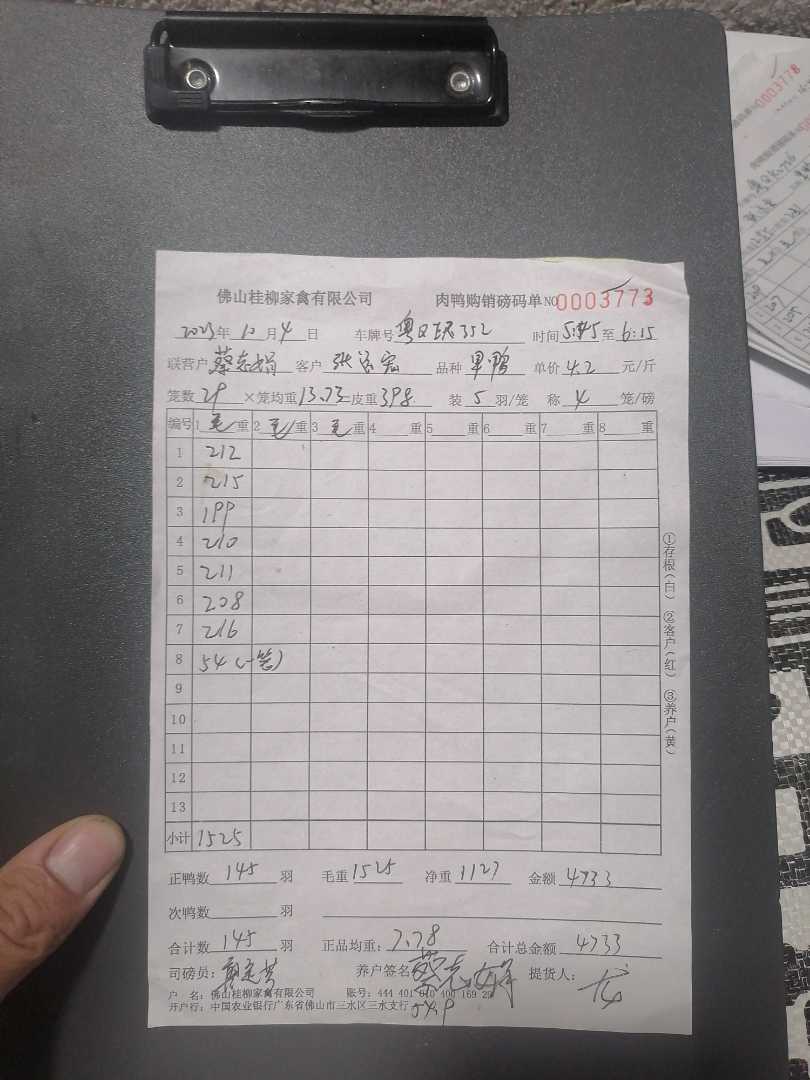 佛山桂柳家禽有限公司 肉鸭购销磅码单 NO 0003773
2023年 10月 4日 车牌号 352 时间 5:45至 6:15
联营户 蔡志娟 客户 张 品种 单价 4.2 元/斤
笼数 29 ×笼均重 13.73 皮重 398 装 5 羽/笼 称 4 笼/磅
编号 1 毛 重 2 毛 重 3 毛 重 4 重 5 重 6 重 7 重 8 重
1 212
2 215
3 199
4 210
5 211
6 208
7 216
8 54 (一笼)
9
10
11
12
13
小计 1525
①存根(白) ②客户(红) ③养户(黄)
正鸭数 145 羽 毛重 1525 净重 1127 金额 4733
次鸭数 羽
合计数 145 羽 正品均重: 7.78 合计总金额 4733
司磅员: 养户签名 蔡志娟 提货人: 龙
户 名: 佛山桂柳家禽有限公司 账号: 444 401 010 400 169 29
开户行: 中国农业银行广东省佛山市三水区三水支行
0003778